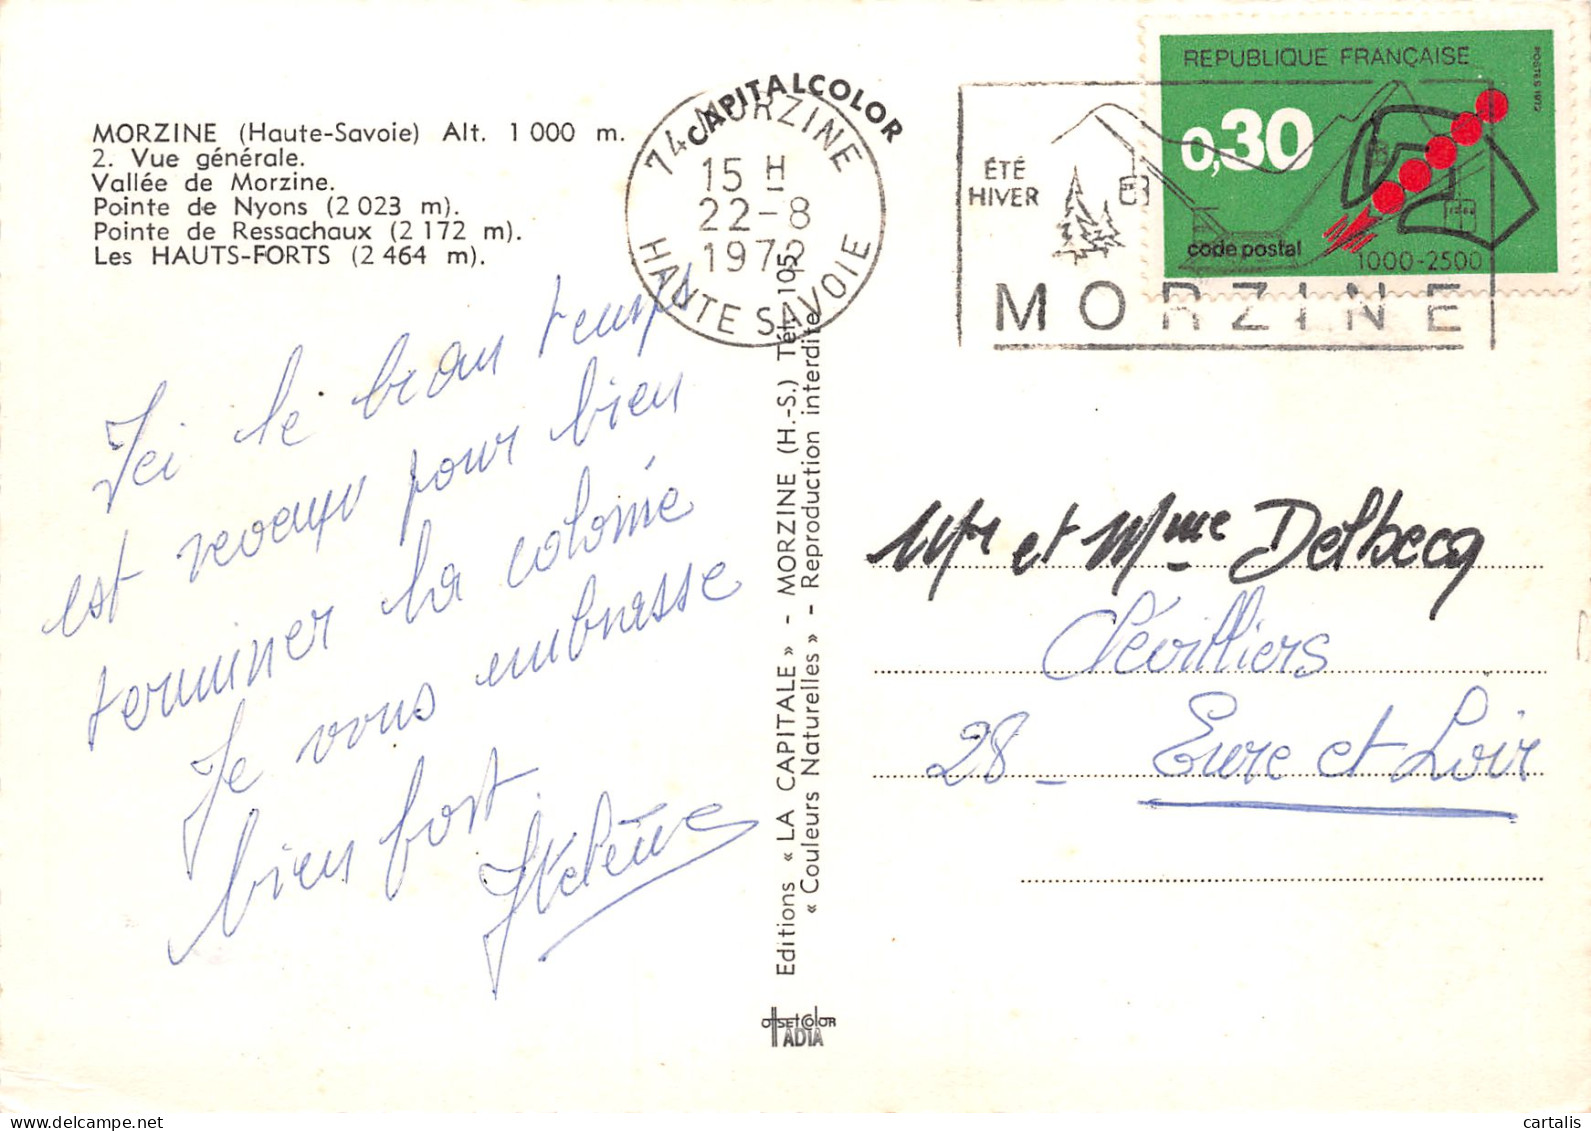 MORZINE (Haute-Savoie) Alt. 1 000 m.
2. Vue générale.
Vallée de Morzine.
Pointe de Nyons (2 023 m).
Pointe de Ressachaux (2 172 m).
Les HAUTS-FORTS (2 464 m).
CAPITALCOLOR
74 MORZINE
15 H
22-8
1972
HAUTE SAVOIE
ÉTÉ
HIVER
MORZINE
1000-2500
REPUBLIQUE FRANÇAISE
0,30
code postal
POSTES 1972
Ici le beau temps
est revenu pour bien
terminer la colonie
Je vous embrasse
bien fort.
Hélène
Editions « LA CAPITALE » - MORZINE (H.-S.) Tél. 105
« Couleurs Naturelles » - Reproduction interdite
Mr et Mme Delbecq
Clévilliers
28 - Eure et Loir
OFFSET COLOR
IADIA
cartalis